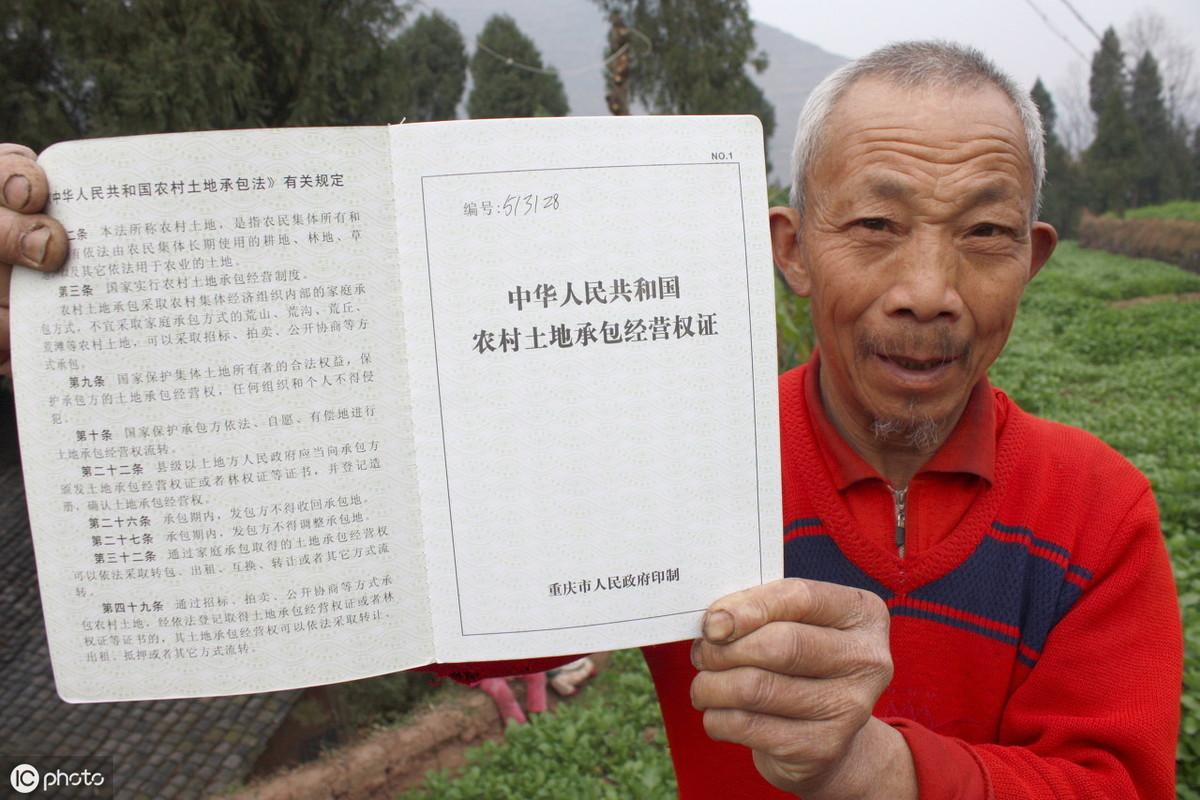 中华人民共和国农村土地承包法》有关规定
二条 本法所称农村土地，是指农民集体所有和
有依法由农民集体长期使用的耕地、林地、草
及其它依法用于农业的土地。
第三条 国家实行农村土地承包经营制度。
农村土地承包采取农村集体经济组织内部的家庭承
包方式，不宜采取家庭承包方式的荒山、荒沟、荒丘、
荒滩等农村土地，可以采取招标、拍卖、公开协商等方
式承包。
第九条 国家保护集体土地所有者的合法权益，保
护承包方的土地承包经营权，任何组织和个人不得侵
犯。
第十条 国家保护承包方依法、自愿、有偿地进行
土地承包经营权流转。
第二十二条 县级以上地方人民政府应当向承包方
颁发土地承包经营权证或者林权证等证书，并登记造
册，确认土地承包经营权。
第二十六条 承包期内，发包方不得收回承包地。
第二十七条 承包期内，发包方不得调整承包地。
第三十二条 通过家庭承包取得的土地承包经营权
可以依法采取转包、出租、互换、转让或者其它方式流
转。
第四十九条 通过招标、拍卖、公开协商等方式承
包农村土地，经依法登记取得土地承包经营权证或者林
权证等证书的，其土地承包经营权可以依法采取转让、
出租、抵押或者其它方式流转。
NO.1
编号:513128
中华人民共和国
农村土地承包经营权证
重庆市人民政府印制
IC photo